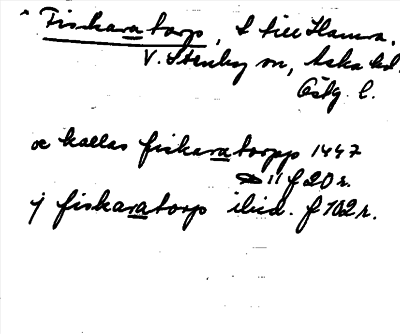 Fiskaratorp, t till Hamra.
V. Stenby sn, Aska hd.
Östg. l.
oc kallas fiskaratorpp 1447
11 f 20 r.
j fiskaratorp ibid. f 102 r.